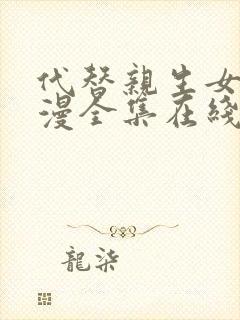 代替親生女
漫全集在綫
龍柒